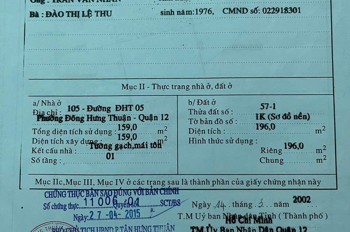 Bà : ĐÀO THỊ LỆ THU sinh năm:1976, CMND số: 022918301
Mục II - Thực trạng nhà ở, đất ở
a/ Nhà ở
Địa chỉ : 105 - Đường ĐHT 05
Phường Đông Hưng Thuận - Quận 12
Tổng diện tích sử dụng : 159,0 m2
Diện tích xây dựng : 159,0 m2
Kết cấu nhà : Tường gạch,mái tôn
Số tầng : 01
b/ Đất ở
Thửa đất số : 57-1
Tờ bản đồ số : 1K (Sơ đồ nền)
Diện tích : 196,0 m2
Hình thức sử dụng :
Riêng 196,0 m2
Chung m2
Mục IIc, Mục III, Mục IV ở các trang sau là thành phần của giấy chứng nhận này
CHỨNG THỰC BẢN SAO ĐÚNG VỚI BẢN CHÍNH
Số chứng thực 11006 SCT/BS
Ngày 27-04-2015
TÂN HƯNG THUẬN
Ngày 14 2002
Hồ Chí Minh
T.M Uỷ ban Nhân dân Tỉnh ( Thành phố )
TM Ủy Ban Nhân Dân Quận 12